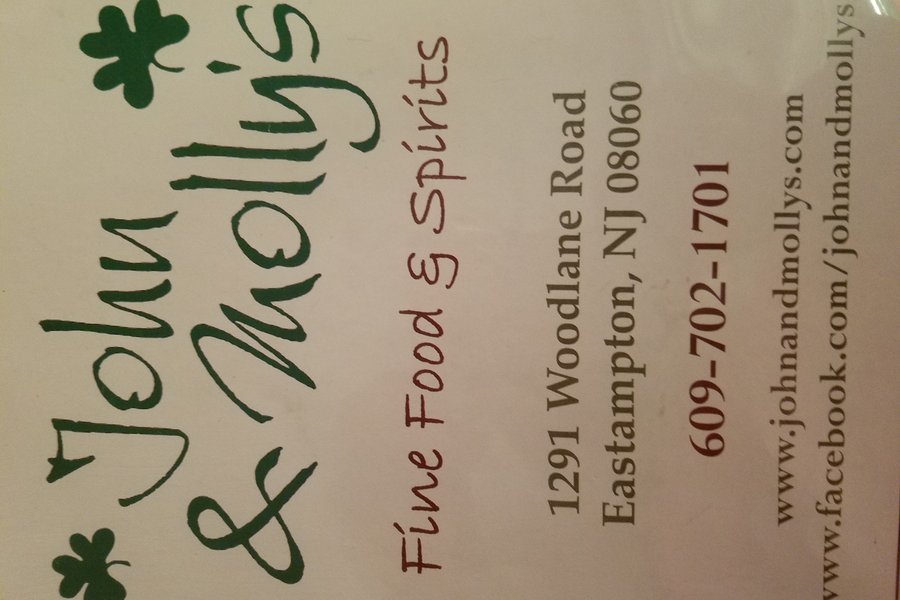 John
& Molly's
Fine Food & Spirits
1291 Woodlane Road
Eastampton, NJ 08060
609-702-1701
www.johnandmollys.com
www.facebook.com/johnandmollys